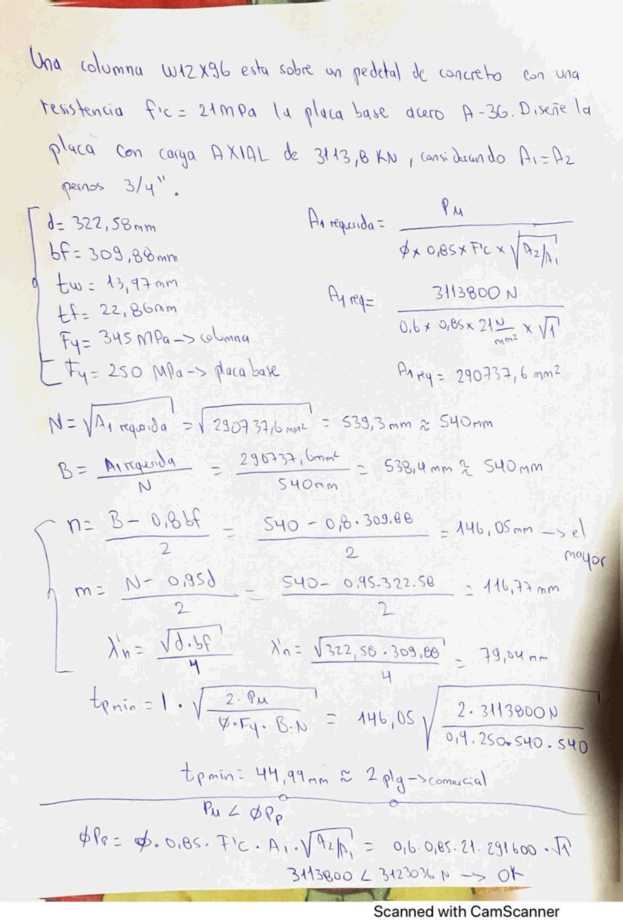 Una columna W12X96 esta sobre un pedetal de concreto con una
resistencia f'c = 21MPa la placa base acero A-36. Diseñe la
placa con carga AXIAL de 3113,8 KN, considerando A1=A2
pernos 3/4".
d= 322,58mm
bf= 309,88mm
tw= 13,97mm
tf= 22,86mm
Fy= 345 MPa -> columna
Fy= 250 MPa -> placa base
A1 requerida = Pu / (ø x 0,85 x F'c x √(A2/A1))
A1 req = 3113800 N / (0,6 x 0,85 x 21 N/mm² x √1)
A1 req = 290737,6 mm²
N= √A1 requerida = √290737,6 mm² = 539,3 mm ≈ 540mm
B = A1 requerida / N = 290737,6mm² / 540mm = 538,4mm ≈ 540mm
n= (B - 0,8bf) / 2 = (540 - 0,8·309,88) / 2 = 146,05mm -> el mayor
m= (N - 0,95d) / 2 = (540 - 0,95·322.58) / 2 = 116,77 mm
λ'n = √(d·bf) / 4 λ'n = √(322,58·309,88) / 4 = 79,04 mm
tpmin = l · √(2·Pu / (ø·Fy·B·N)) = 146,05 √(2·3113800N / (0,9·250·540·540))
tpmin= 44,99mm ≈ 2 plg -> comercial
Pu < øPp
øPp = ø·0,85·F'c·A1·√(A2/A1) = 0,6·0,85·21·291600·√1
3113800 < 3123036 N -> OK
Scanned with CamScanner